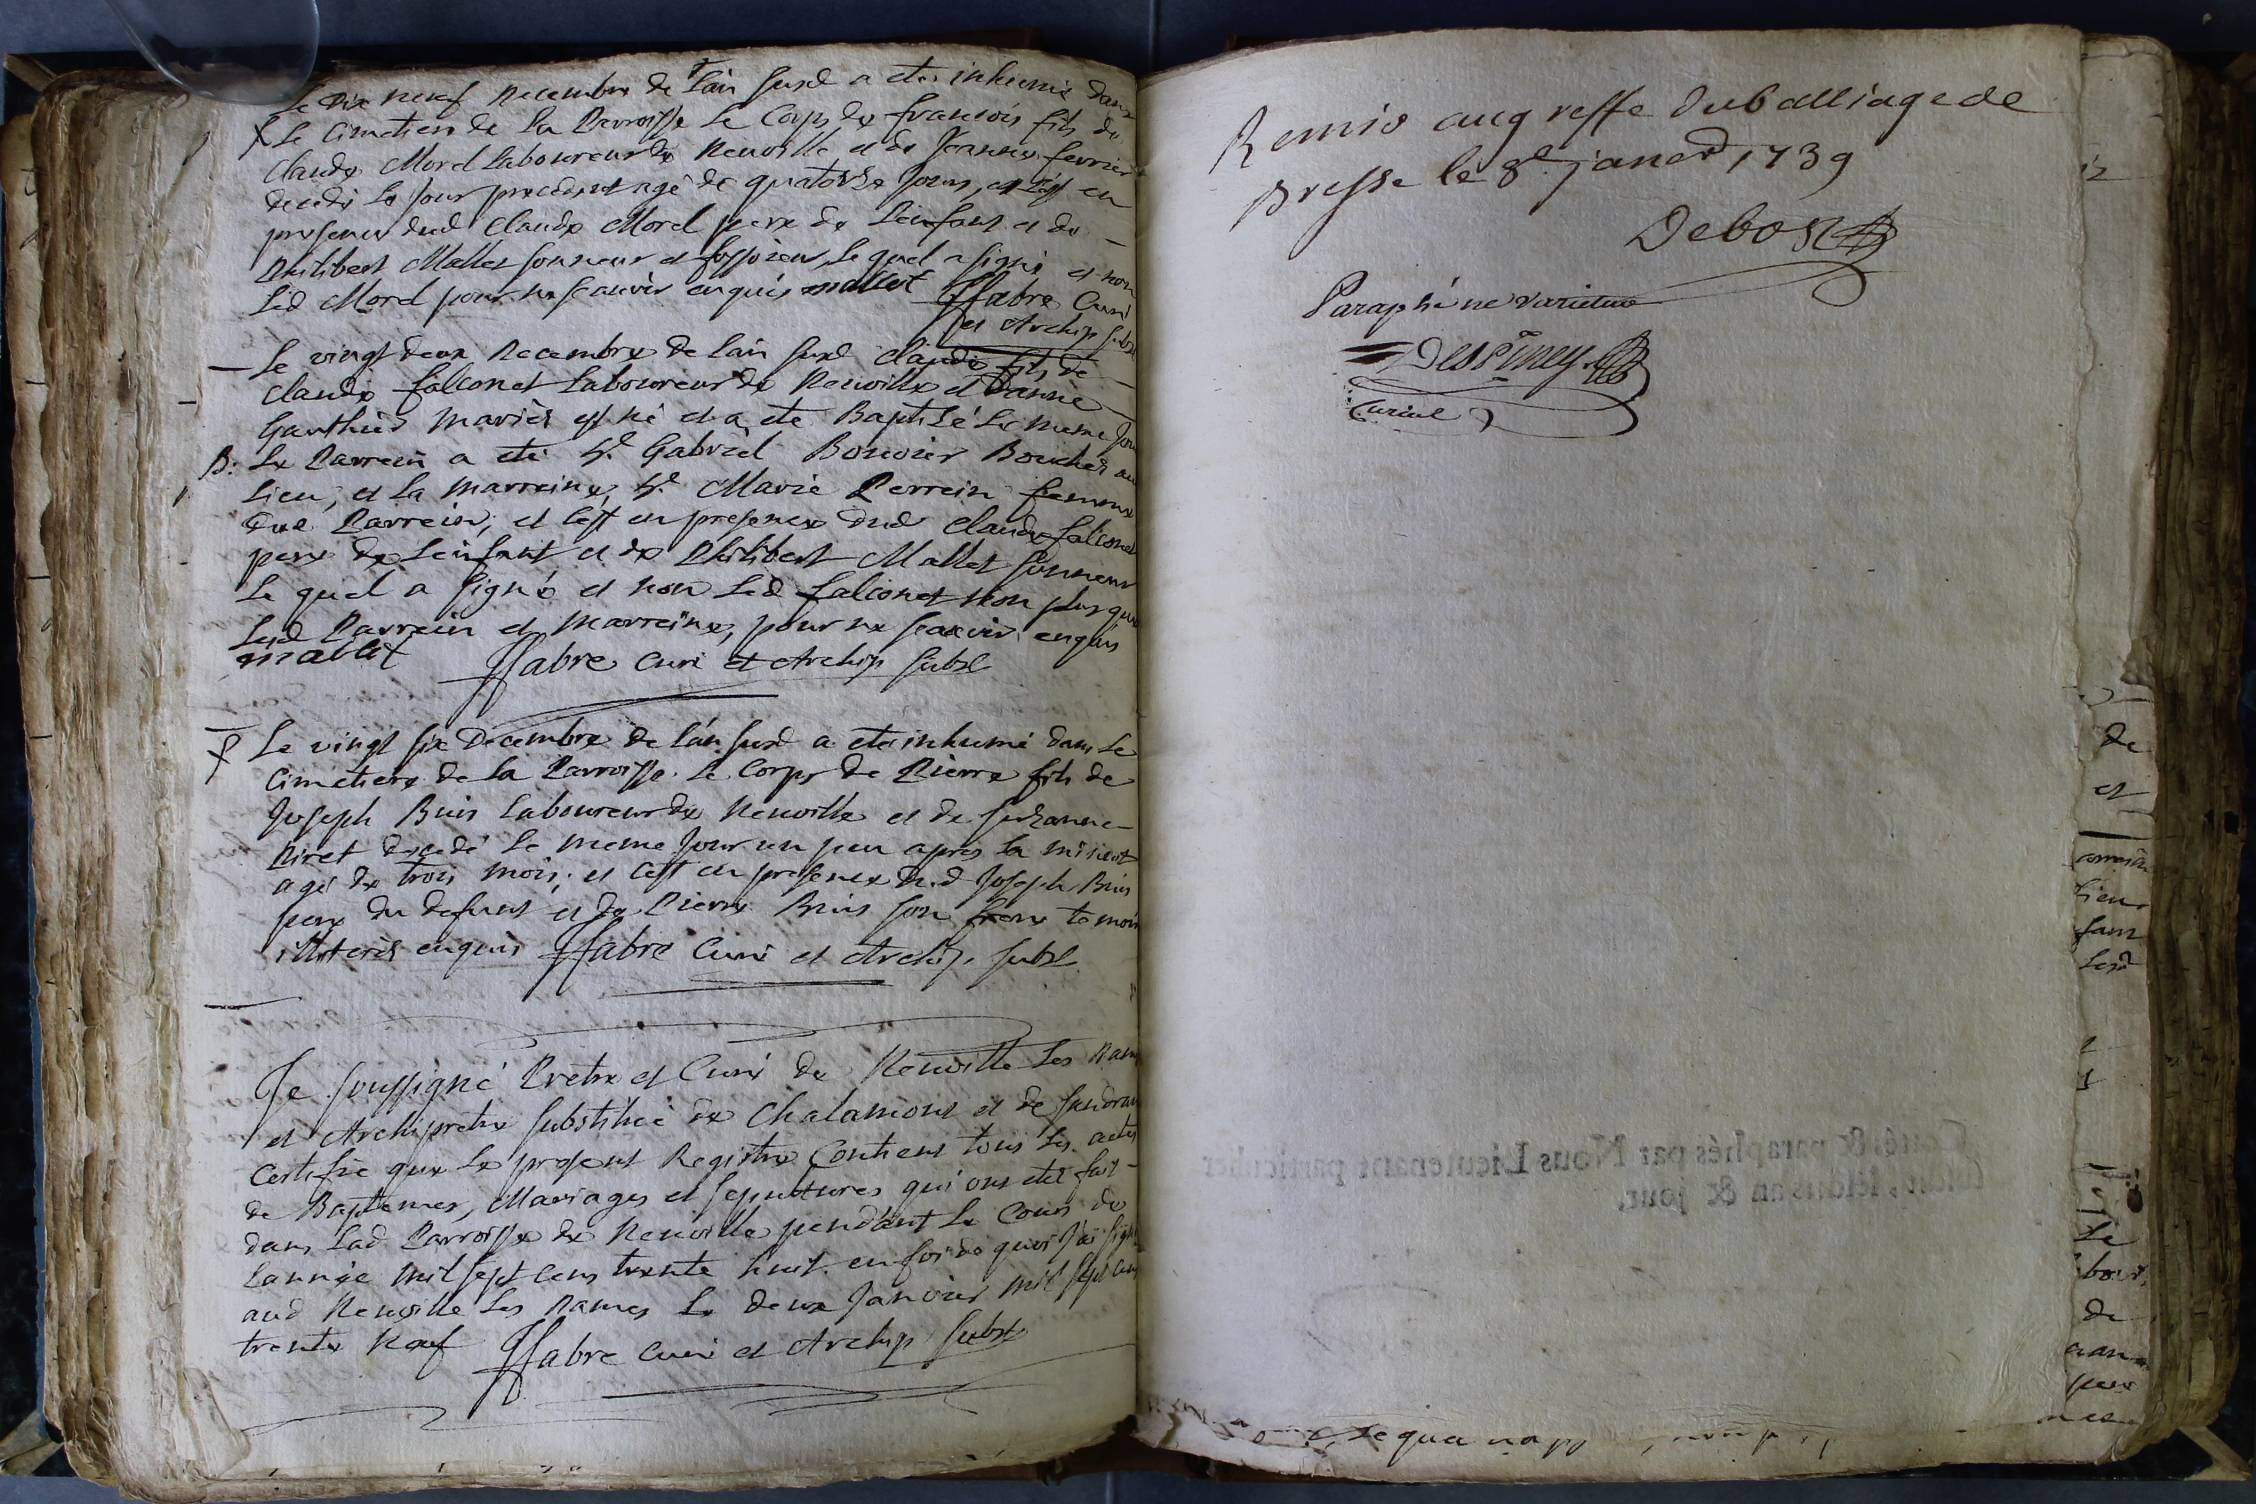 Le Dix neuf Decembre de l'an susd a ete inhumé dans
Le Cimetiere de la Parroisse Le Corps de francois fils de
Claude Morel Laboureur de Neuville et de Jeanne fevrier
decedé le jour precedent agé de quatorze jours, et c'est en
presence dud Claude Morel pere de L'enfant et de
Philibert Mallet sonneur et fossoieur, le quel a signé et non
Led Morel pour ne scauoir enquis mallet ffabre Curé
et Archip subst
Le vingt deux Decembre de l'an susd Claude fils de
Claude falconet Laboureur de Neuville et D'anne
Gauthier mariés est né et a ete Baptisé le meme jour
B: Le Parrein a eté Sr. Gabriel Bouvier Boucher au
lieu, et la Marreine, Sr. Marie Perrein femme
dud Parrein, et c'est en presence dud Claude falconet
pere de L'enfant et de Philibert Mallet sonneur
Le quel a signé et non led falconet non plus que
Lesd Parrein et Marreine, pour ne scauoir enquis
mallet ffabre Curé et Archip subst
Le vingt six Decembre de l'an susd a eté inhumé dans le
Cimetiere de la Parroisse. Le Corps de Pierre fils de
Joseph Buis Laboureur de Neuville et de Suzanne
Piret decedé le meme jour un peu apres la minuit
agé de trois mois, et c'est en presence dud Joseph Buis
pere du defunt et de Pierre Buis son frere temoins
illiterés enquis ffabre Curé et Archip. subst
Je soussigné Pretre et Curé de Neuville Les Dames
et Archipretre substitué de Chalamont et de sandrans
Certifie que Le present Registre Contient tous les actes
de Baptemes, Mariages et sepultures qui ont eté fait
dans Lad Parroisse de Neuville pendant le Cours de
L'année mil sept cens trente huit en foi de quoi j'ai signé
aud Neuville Les Dames Le deux Janvier mil sept cens
trente Neuf ffabre Curé et Archip subst
Remis au greffe du balliage de
Bresse le 8e. janer. 1739
Debost
Paraphé ne varietur
Despiney
Coté, & paraphés par Nous Lieutenant particulier
susdit, lesdits an & jour,